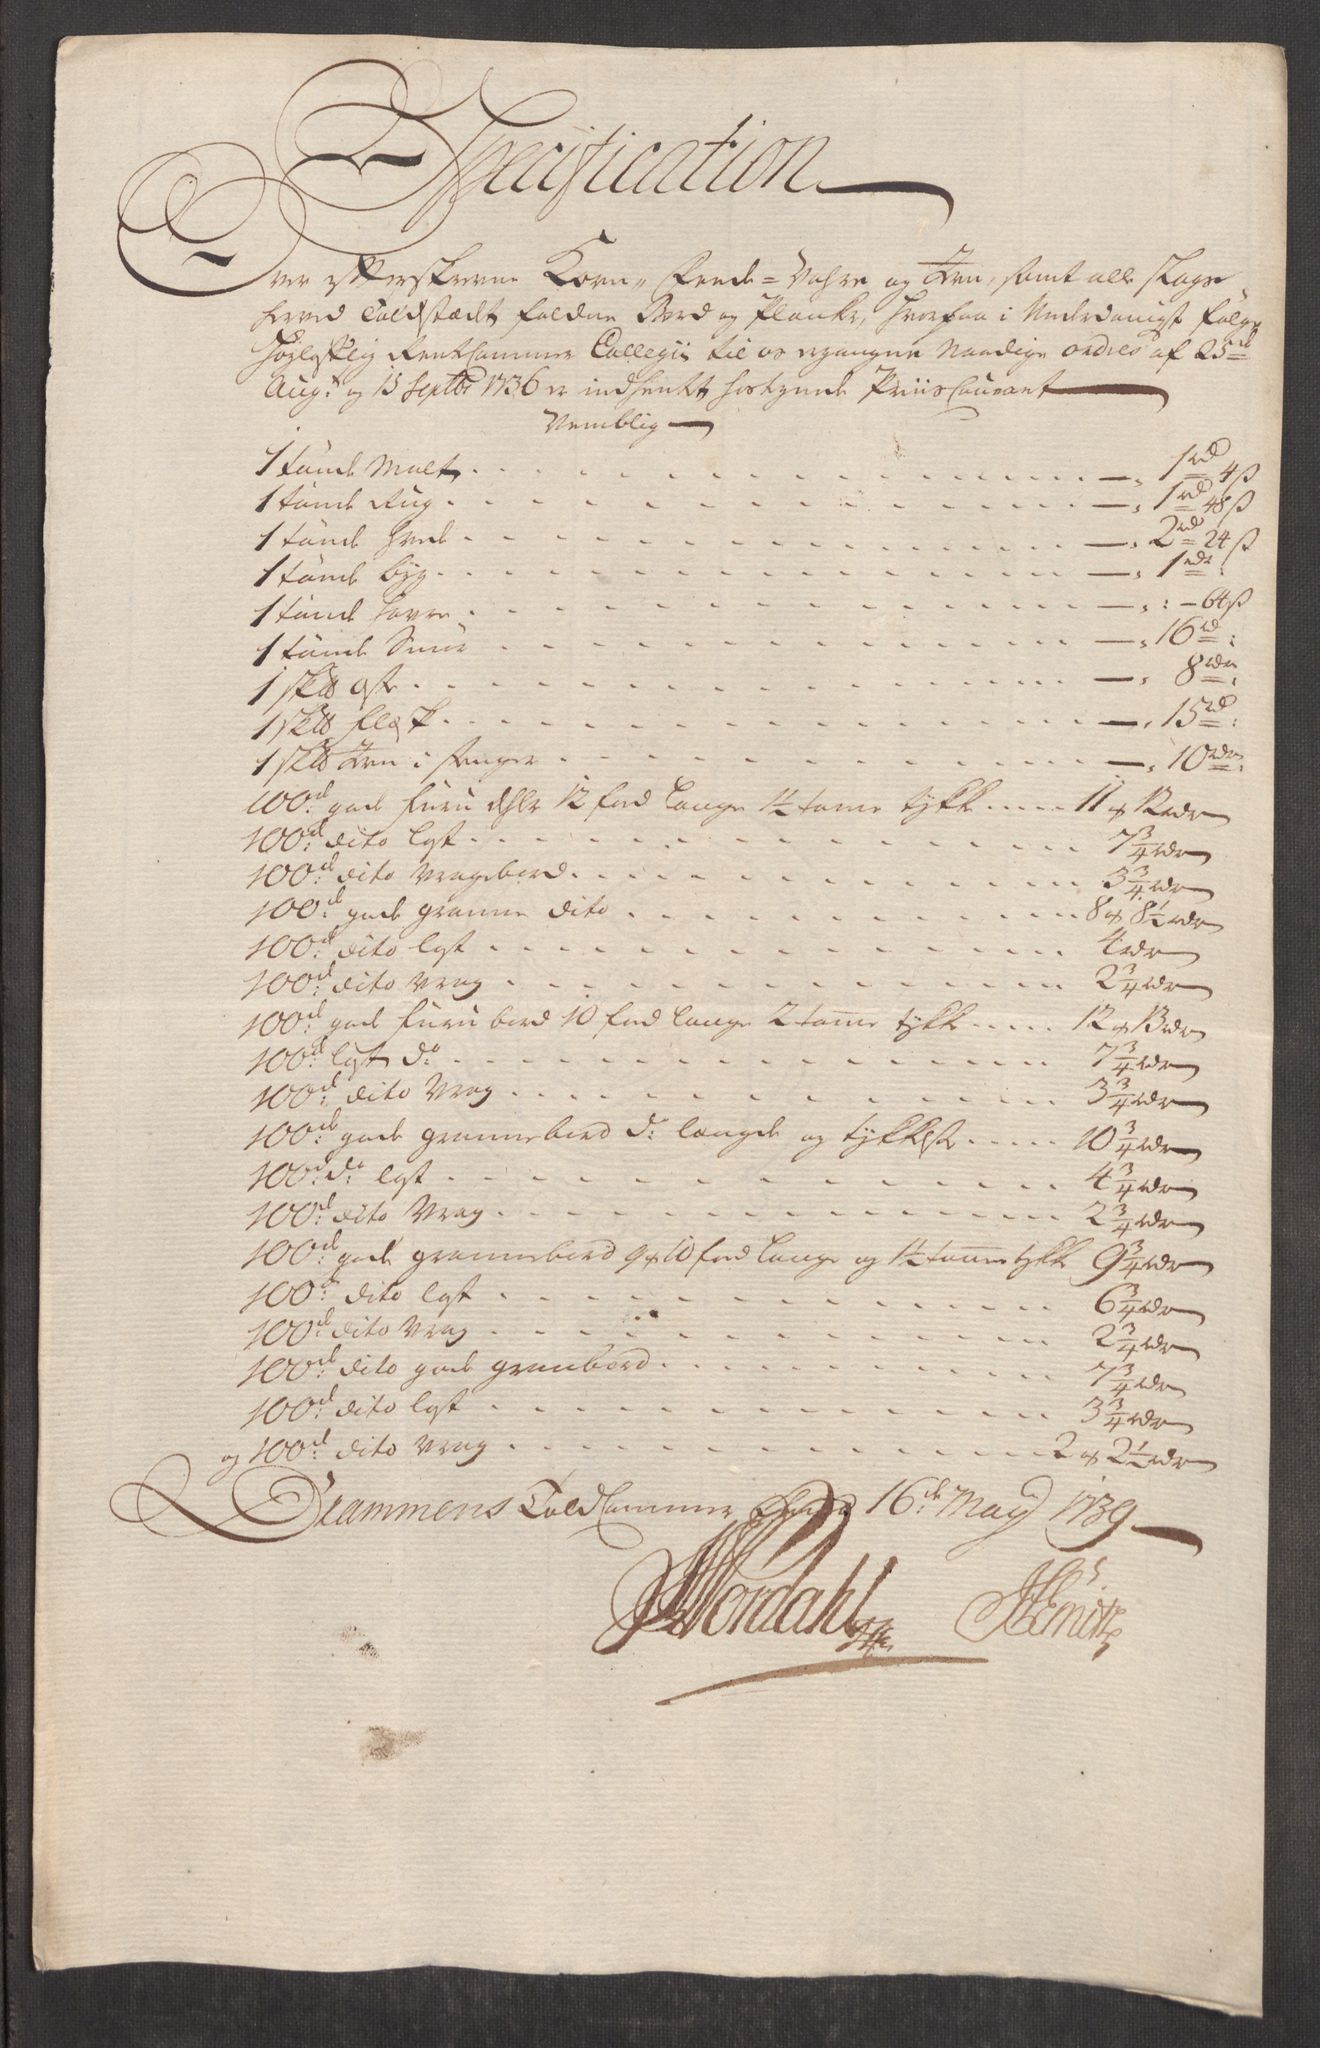 Specification
Over efterskrevne Korn, Feede-Vahre og Jern, samt alle slags
herved Toldstædet faldne Bord og Planke, hvorpaa i Underdanigst følge
Høyloflig RentCammer Collegii til os ergangne Naadige ordres af 25de
Augti og 15 Septbr 1736 er indhentet hostagende PriisCourant
Nemblig
1 tønde Malt 1 rd 4 ß
1 tønde Rug 1 rd 48 ß
1 tønde Hvede 2 rd 24 ß
1 tønde byg 1 rdr
1 tønde havre - 64 ß
1 tønde Smør 16 rd
1 sk℔ ost 8 rdr
1 sk℔ flesk 15 rd
1 sk℔ Jern i stenger 10 rdr
100de gode furu dehler 12 fod lange 1½ tomme tykke 11 à 12 rdr
100de dito løst 7¾ rdr
100de dito vragebord 3¾ rdr
100de gode granne dito 8 à 8½ rdr
100de dito løst 4 rdr
100de dito vrag 2¾ rdr
100de gode furu bord 10 fod lange 2 tomme tykke 12 à 13 rdr
100de løst do 7¾ rdr
100de dito Vrag 3¾ rdr
100de gode grannebord do længde og tykkelse 10¾ rdr
100de do løst 4¾ rdr
100de dito Vrag 2¾ rdr
100de gode grannebord 9 à 10 fod lange og 1½ tomme tykke 9¾ rdr
100de dito løst 6¾ rdr
100de dito Vrag 2¾ rdr
100de dito gode granbord 7¾ rdr
100de dito løst 3¾ rdr
og 100de dito Vrag 2 à 2½ rdr
Drammens ToldCammer 16de May 1739
Nordahl